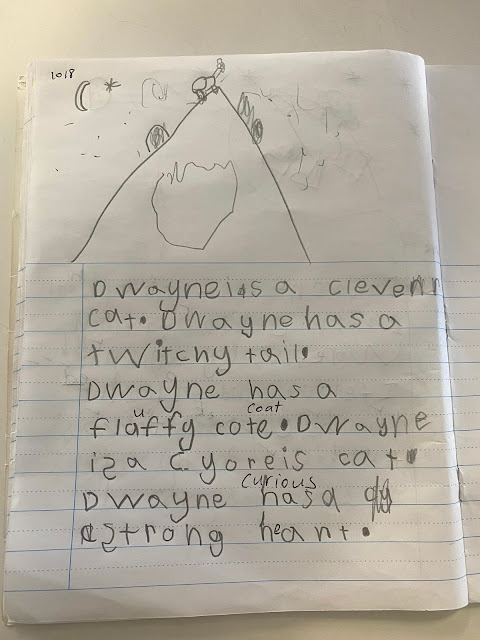 1018
Dwayne is a cleverr
cat. Dwayne has a
twitchy tail.
Dwayne has a
u coat
flaffy cote. Dwayne
is a Cyoreis cat.
curious
Dwayne has a
strong heart.